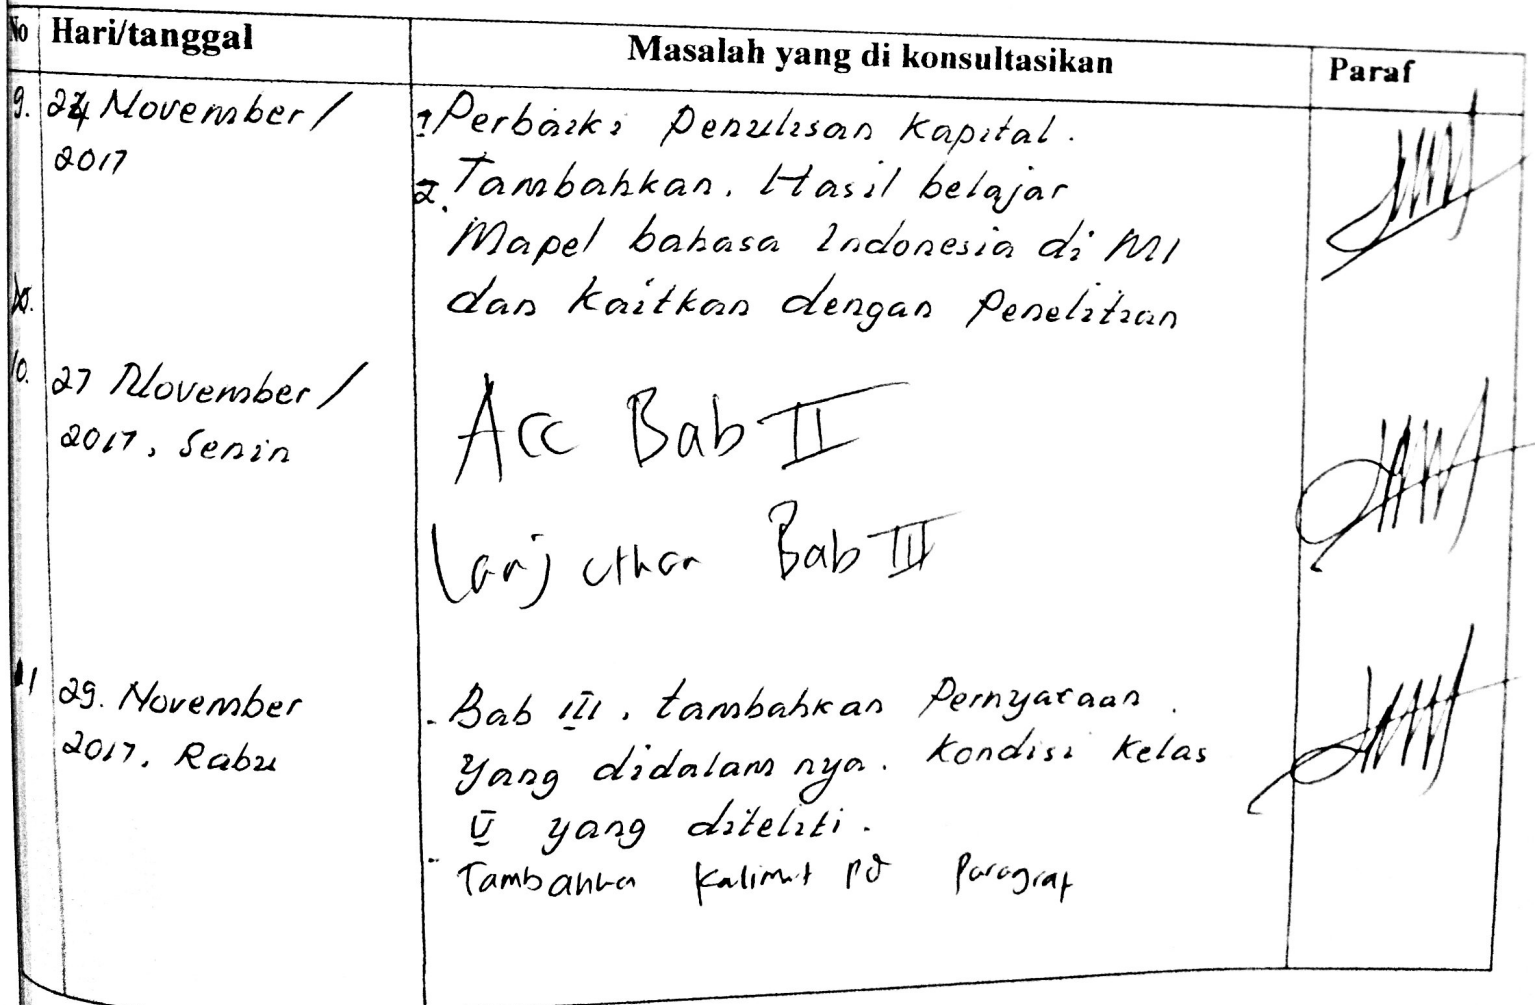 No Hari/tanggal Masalah yang di konsultasikan Paraf
9. 24 November / 1. Perbaiki Penulisan Kapital.
2017
2. Tambahkan. Hasil belajar
Mapel bahasa Indonesia di MI
dan kaitkan dengan Penelitian
10. 27 November / Acc Bab II
2017, Senin
Lanjutkan Bab III
11 29. November - Bab III, tambahkan Pernyataan.
2017. Rabu yang didalam nya. Kondisi Kelas
V yang diteliti.
- Tambahkan Kalimat pd Paragraf